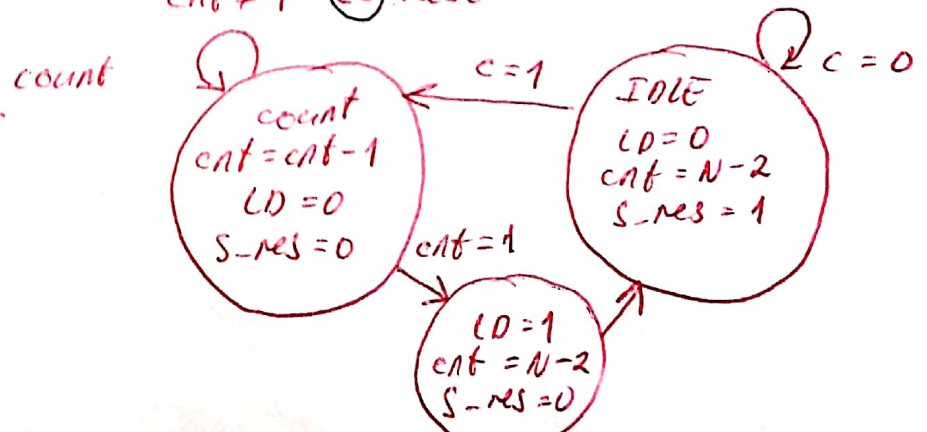 count
count
cnt = cnt - 1
LD = 0
S_res = 0
c = 1
IDLE
LD = 0
cnt = N - 2
S_res = 1
c = 0
cnt = 1
LD = 1
cnt = N - 2
S_res = 0